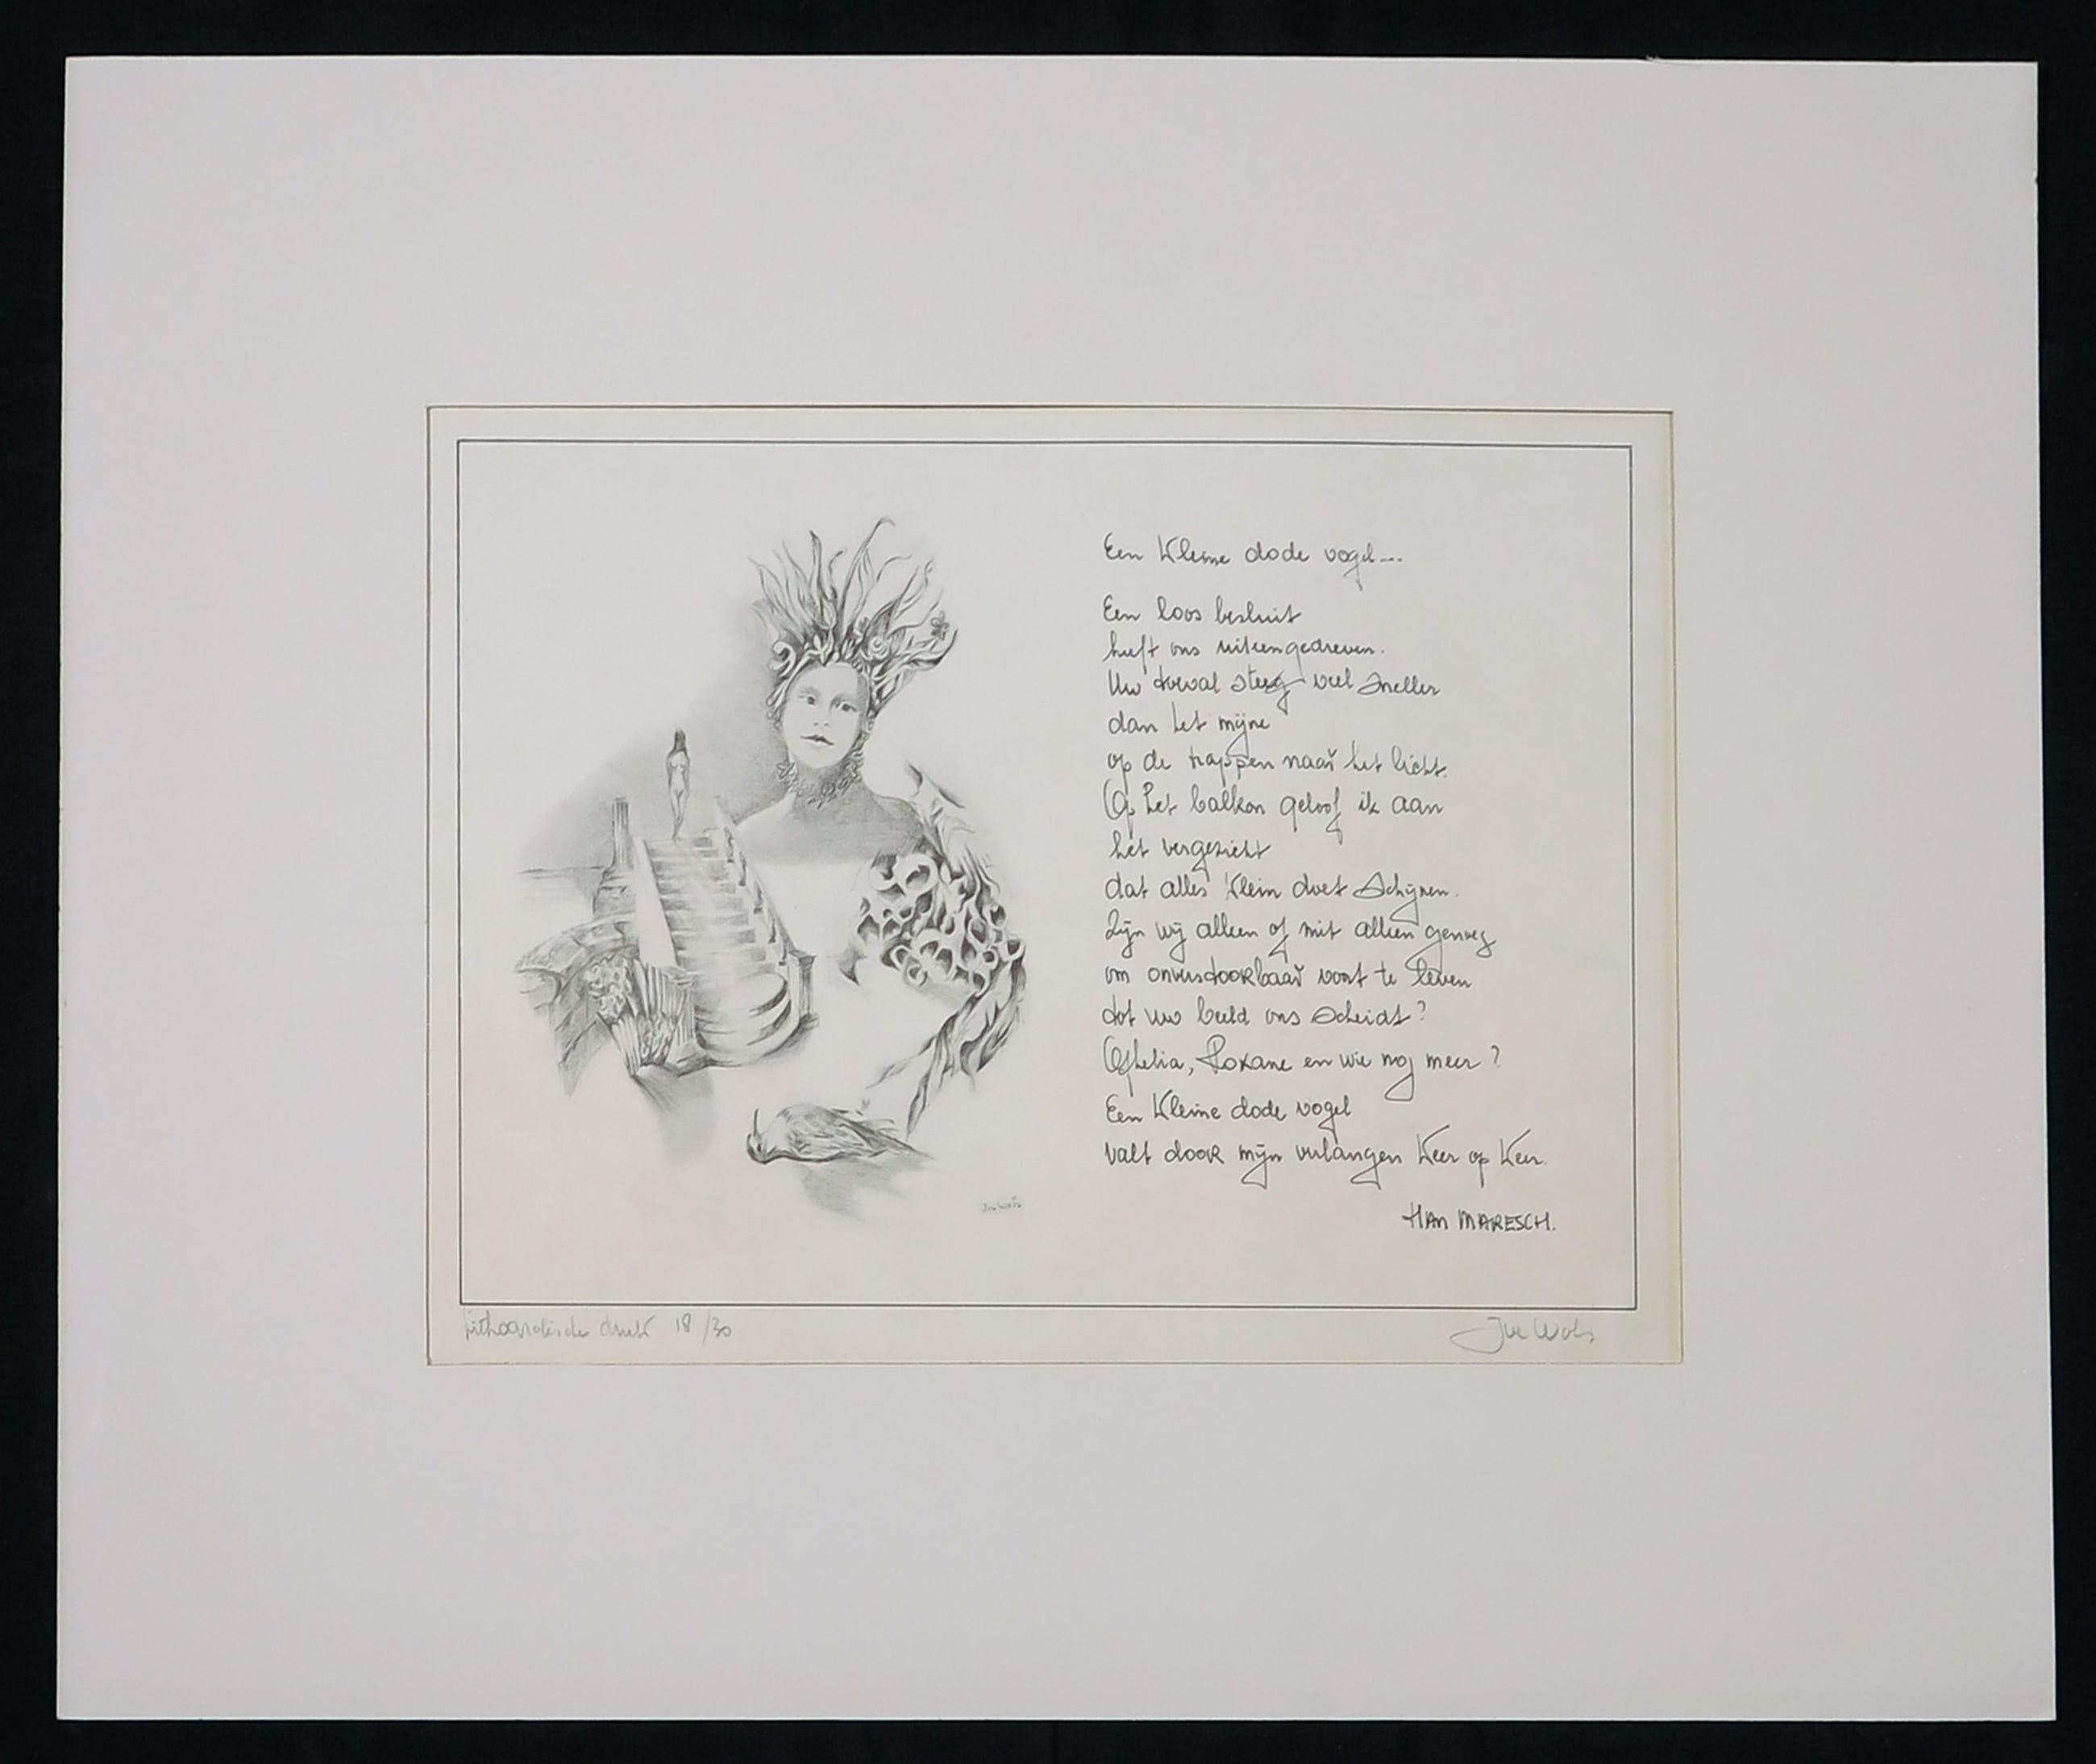 Een kleine dode vogel...
Een loos besluit
heeft ons uiteengedreven.
Uw toeval steeg veel sneller
dan het mijne
op de trappen naar het licht.
Op het balkon geloof ik aan
het vergezicht
dat alles klein doet schijnen.
Zijn wij alleen of niet alleen genoeg
om onverstoorbaar voort te leven
tot uw beeld ons scheidt?
Ophelia, Roxane en wie nog meer?
Een kleine dode vogel
valt door mijn verlangen keer op keer.
HAN MARESCH.
Lithografische druk 18/30